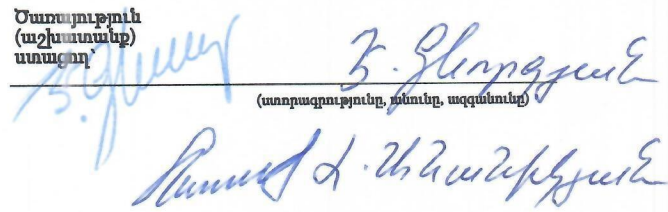 Ծառայություն
(աշխատանք)
ստացող՝
Է. Գևորգյան
(ստորագրությունը, անունը, ազգանունը)
Հ. Անանիկյան